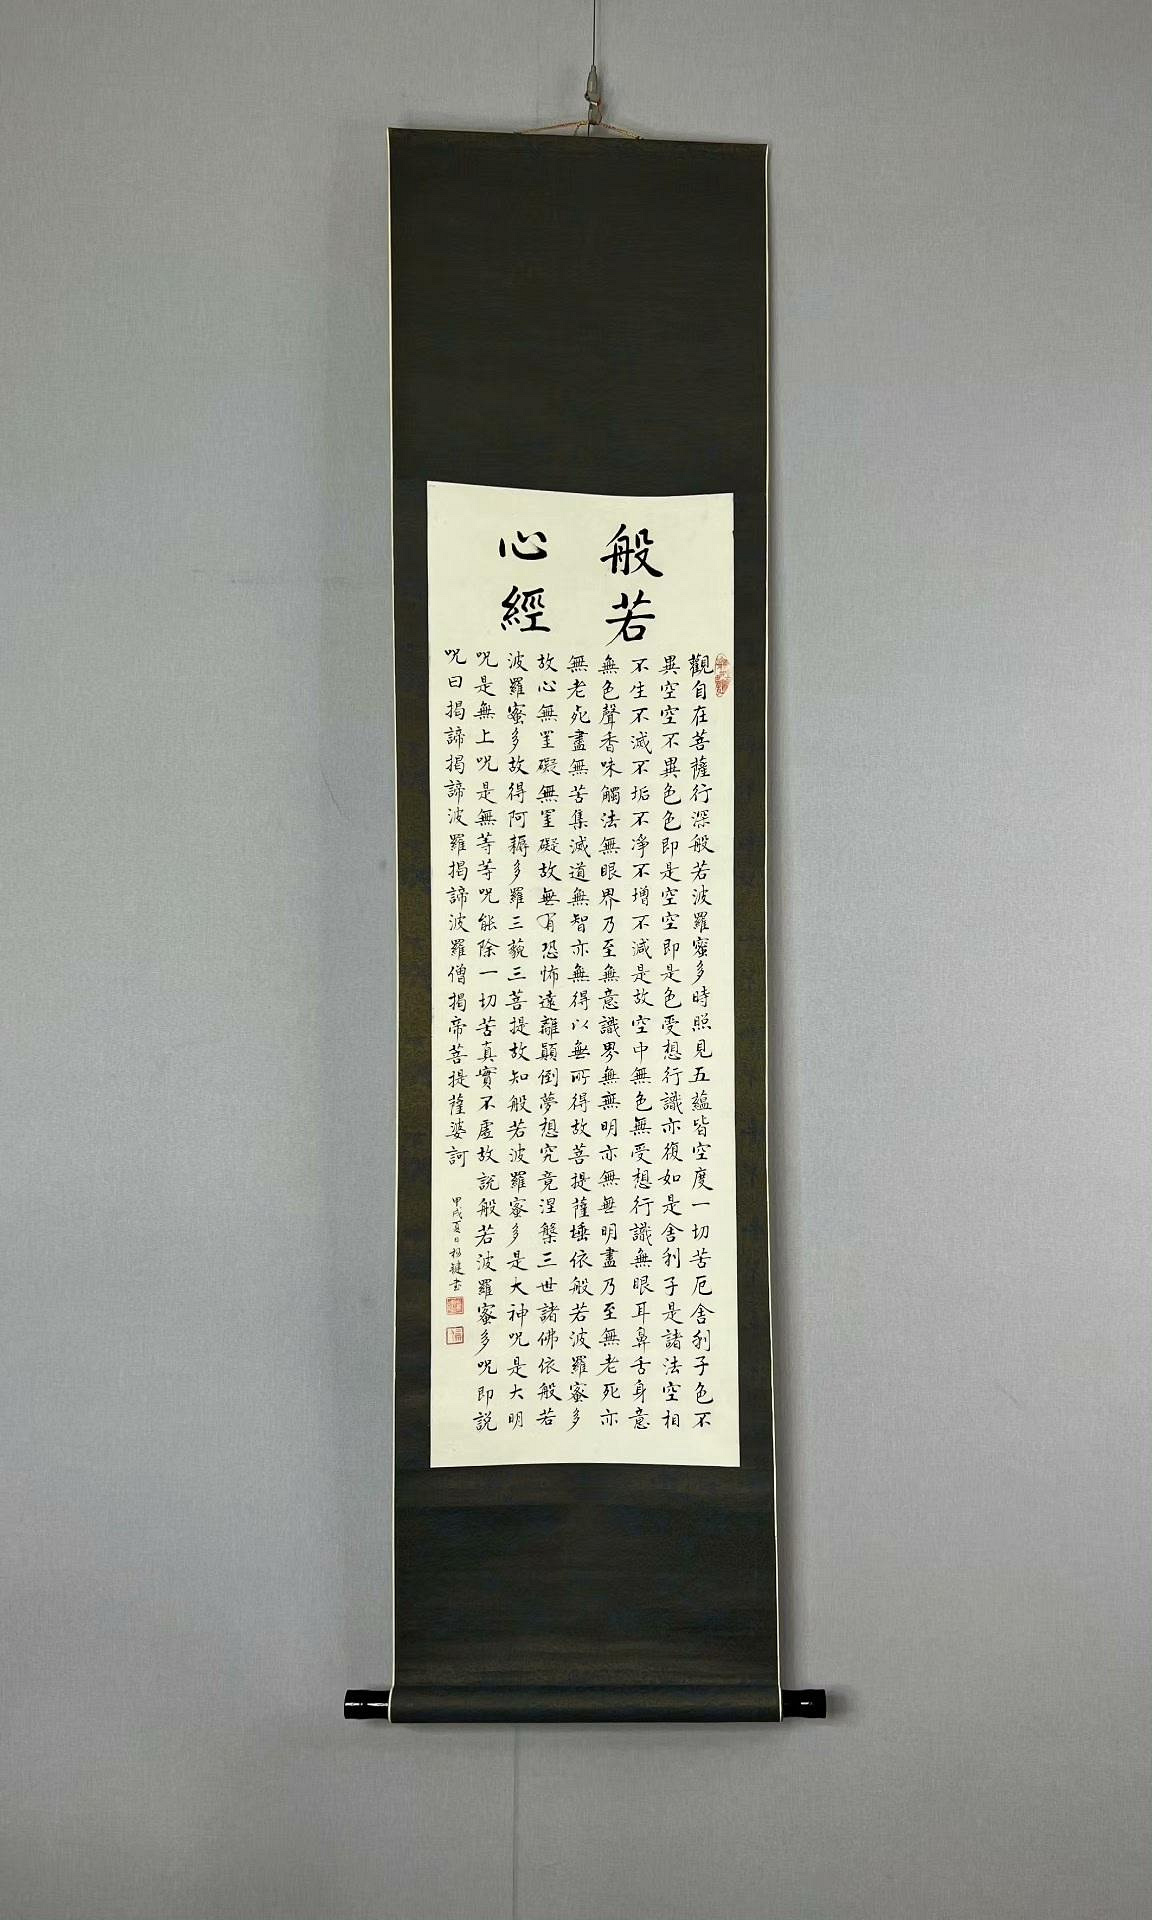 般若
心經
觀自在菩薩行深般若波羅蜜多時照見五蘊皆空度一切苦厄舍利子色不
異空空不異色色即是空空即是色受想行識亦復如是舍利子是諸法空相
不生不滅不垢不淨不增不減是故空中無色無受想行識無眼耳鼻舌身意
無色聲香味觸法無眼界乃至無意識界無無明亦無無明盡乃至無老死亦
無老死盡無苦集滅道無智亦無得以無所得故菩提薩埵依般若波羅蜜多
故心無罣礙無罣礙故無有恐怖遠離顛倒夢想究竟涅槃三世諸佛依般若
波羅蜜多故得阿耨多羅三藐三菩提故知般若波羅蜜多是大神呪是大明
呪是無上呪是無等等呪能除一切苦真實不虛故説般若波羅蜜多呪即説
呪曰揭諦揭諦波羅揭諦波羅僧揭帝菩提薩婆訶
甲戌夏日楊鍵書